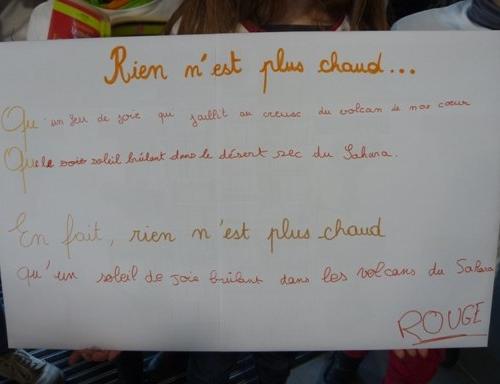 Rien n'est plus chaud...
Qu'un feu de joie qui jaillit au creuse du volcan de nos cœur
Que le soleil brûlant dans le désert sec du Sahara.
En fait, rien n'est plus chaud
qu'un soleil de joie brûlant dans les volcans du Sahara
ROUGE